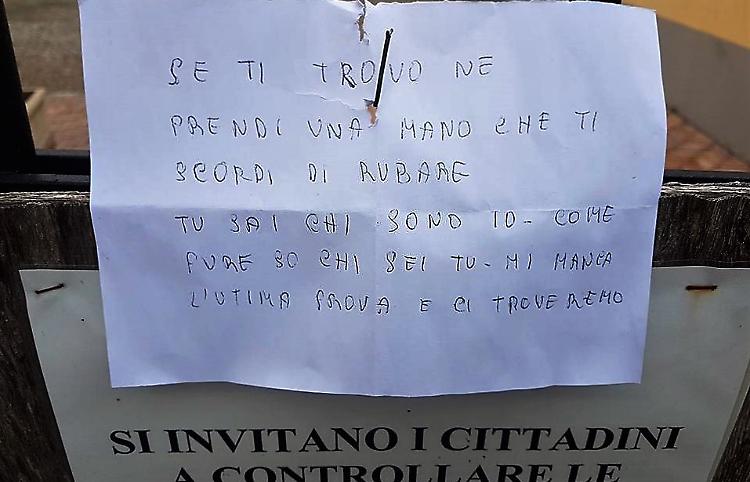 SE TI TROVO NE
PRENDI UNA MANO CHE TI
SCORDI DI RUBARE
TU SAI CHI SONO IO - COME
PURE SO CHI SEI TU - MI MANCA
L'UTIMA PROVA E CI TROVEREMO
SI INVITANO I CITTADINI
A CONTROLLARE LE